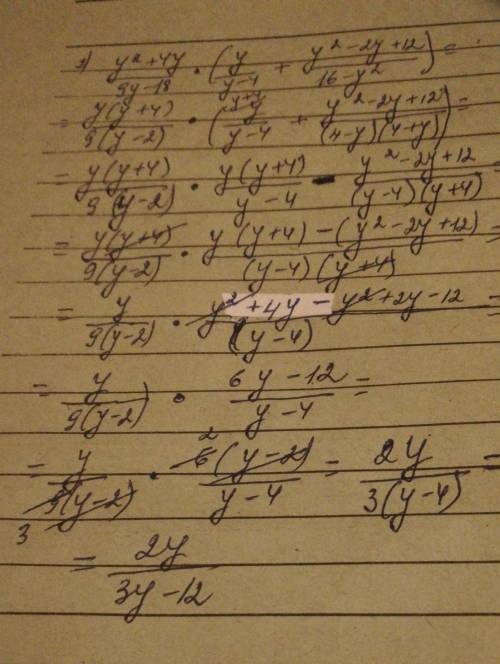 1) (y² + 4y)/(9y - 18) • (y/(y - 4) + (y² - 2y + 12)/(16 - y²)) =
= y(y + 4)/(9(y - 2)) • (y/(y - 4) + (y² - 2y + 12)/((4 - y)(4 + y))) =
= y(y + 4)/(9(y - 2)) • y(y + 4)/(y - 4) - (y² - 2y + 12)/((y - 4)(y + 4))
= y(y + 4)/(9(y - 2)) • (y(y + 4) - (y² - 2y + 12))/((y - 4)(y + 4)) =
= y/(9(y - 2)) • (y² + 4y - y² + 2y - 12)/(y - 4) =
= y/(9(y - 2)) • (6y - 12)/(y - 4) =
= y/(9(y - 2)) 3 • 2 6(y - 2)/(y - 4) = 2y/(3(y - 4)) =
= 2y/(3y - 12)